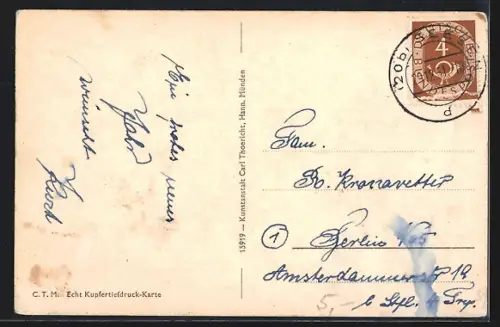 Ein frohes neues
Jahr
wünscht
C. T. M. Echt Kupfertiefdruck-Karte
13919 — Kunstanstalt Carl Thoericht, Hann. Münden
4
(20b)
d
Fam.
R. Kronavetter
1 Berlin
Amsterdammerstr 12
b Stfl. 4 Trp.
5,-